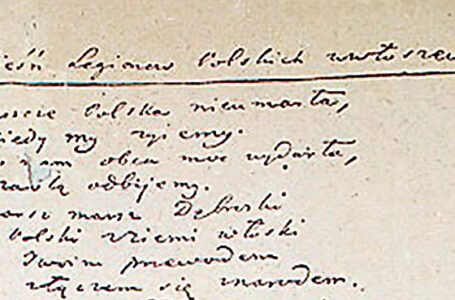 ieśń Legionow Polskich wewłoszec
szcze Polska nieumarła,
iedy my zyiemy.
o nam obca moc wydarła,
zablą odbijemy.
arsz marsz Dąbroski
Polski zziemi włoski
Twoim przewodem
złączem się znarodem.